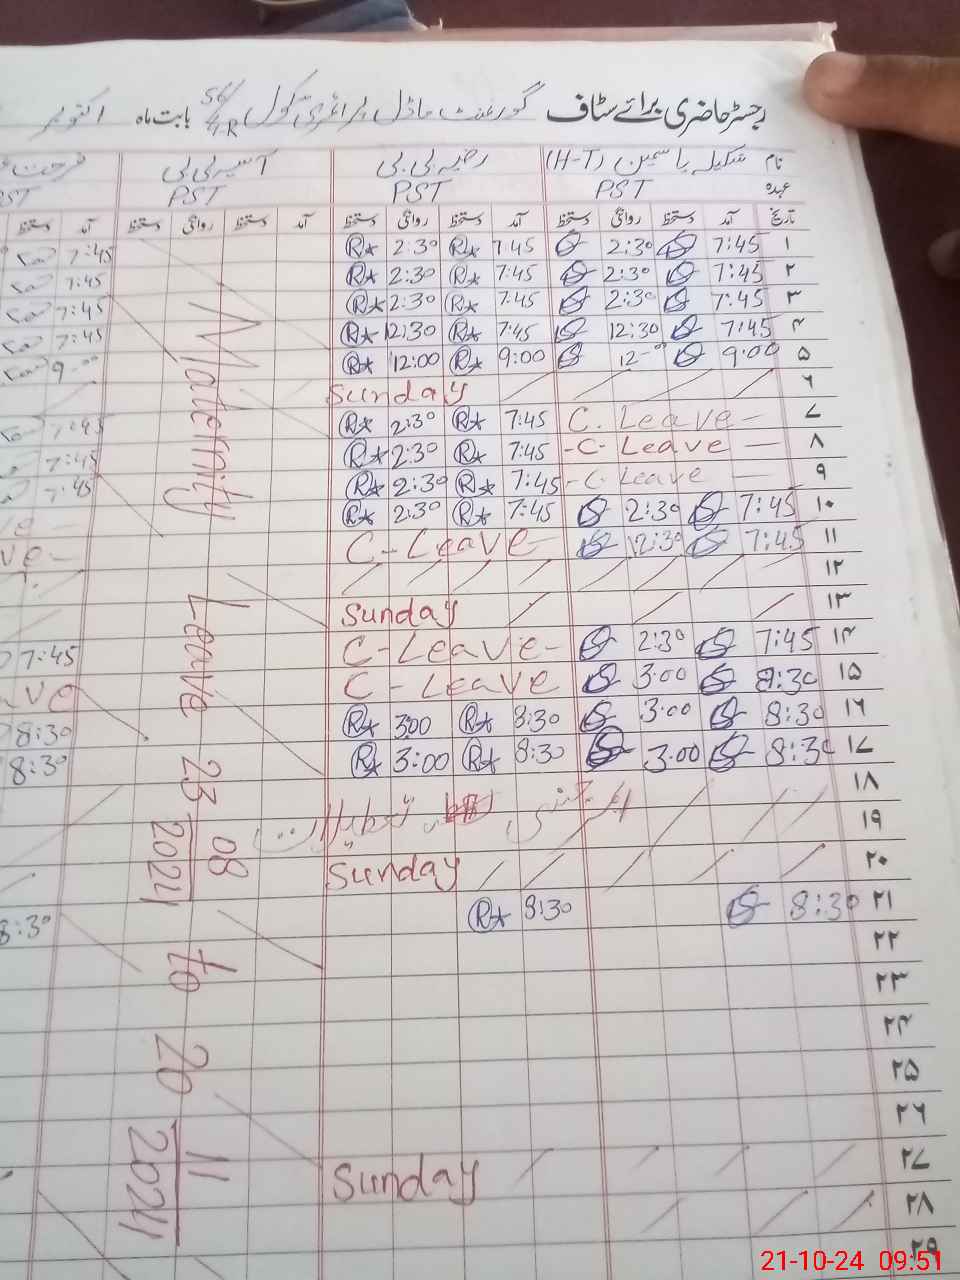 رجسٹر حاضری برائے سٹاف گورنمنٹ ماڈل پرائمری سکول 56/4-R بابت ماہ اکتوبر
نام شکیلہ یاسمین (H-T) رضیہ بی بی آسیہ بی بی
عہدہ PST PST PST PST
تاریخ آمد دستخط روانگی دستخط آمد دستخط روانگی دستخط آمد دستخط روانگی دستخط آمد دستخط
۱ 7:45 2:30 7:45 2:30 7:45
۲ 7:45 2:30 7:45 2:30 7:45
۳ 7:45 2:30 7:45 2:30 7:45
۴ 7:45 12:30 7:45 12:30 7:45
۵ 9:00 12-00 9:00 12:00 9-00
۶ Sunday
۷ C. Leave - 7:45 2:30 7:45
۸ - C- Leave - 7:45 2:30 7:45
۹ - C. Leave - 7:45 2:30 7:45
۱۰ 7:45 2:30 7:45 2:30
۱۱ 7:45 12:30 C - Leave -
۱۲
۱۳ Sunday
۱۴ 7:45 2:30 C - Leave - 7:45
۱۵ 8:30 3:00 C - Leave
۱۶ 8:30 3:00 8:30 3:00 8:30
۱۷ 8:30 3:00 8:30 3:00 8:30
۱۸
۱۹ تعطیلات
۲۰ Sunday
۲۱ 8:30 8:30 8:30
۲۲
۲۳
۲۴
۲۵
۲۶
۲۷ Sunday
۲۸
۲۹
Maternity Leave 23/08/2024 to 20/11/2024
21-10-24 09:51